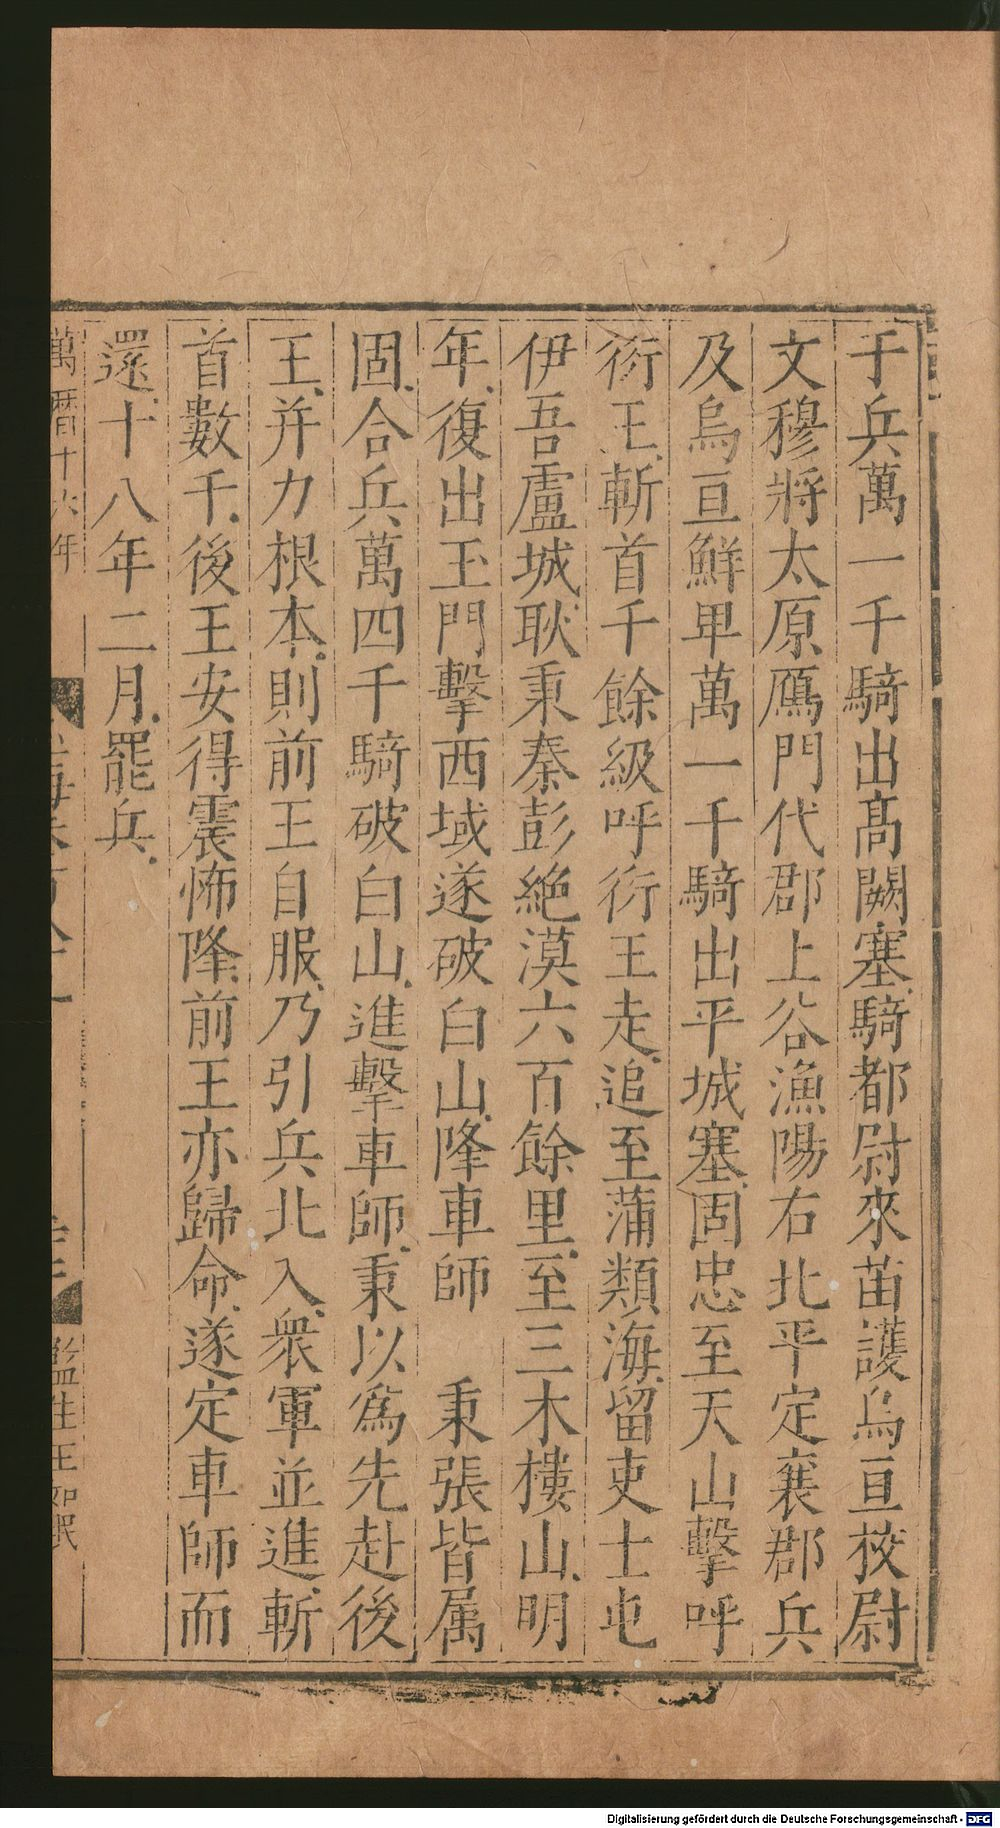 于兵萬一千騎出高闕塞騎都尉來苗護烏亘挍尉
文穆將太原鴈門代郡上谷漁陽右北平定襄郡兵
及烏亘鮮卑萬一千騎出平城塞固忠至天山擊呼
衍王斬首千餘級呼衍王走追至蒲類海留吏士屯
伊吾盧城耿秉秦彭絶漠六百餘里至三木樓山明
年復出玉門擊西域遂破白山降車師 秉張皆属
固合兵萬四千騎破白山進擊車師秉以爲先赴後
王并力根本則前王自服乃引兵北入衆軍並進斬
首數千後王安得震怖降前王亦歸命遂定車師而
還十八年二月罷兵
萬曆十六年
監生王如
Digitalisierung gefördert durch die Deutsche Forschungsgemeinschaft - DFG